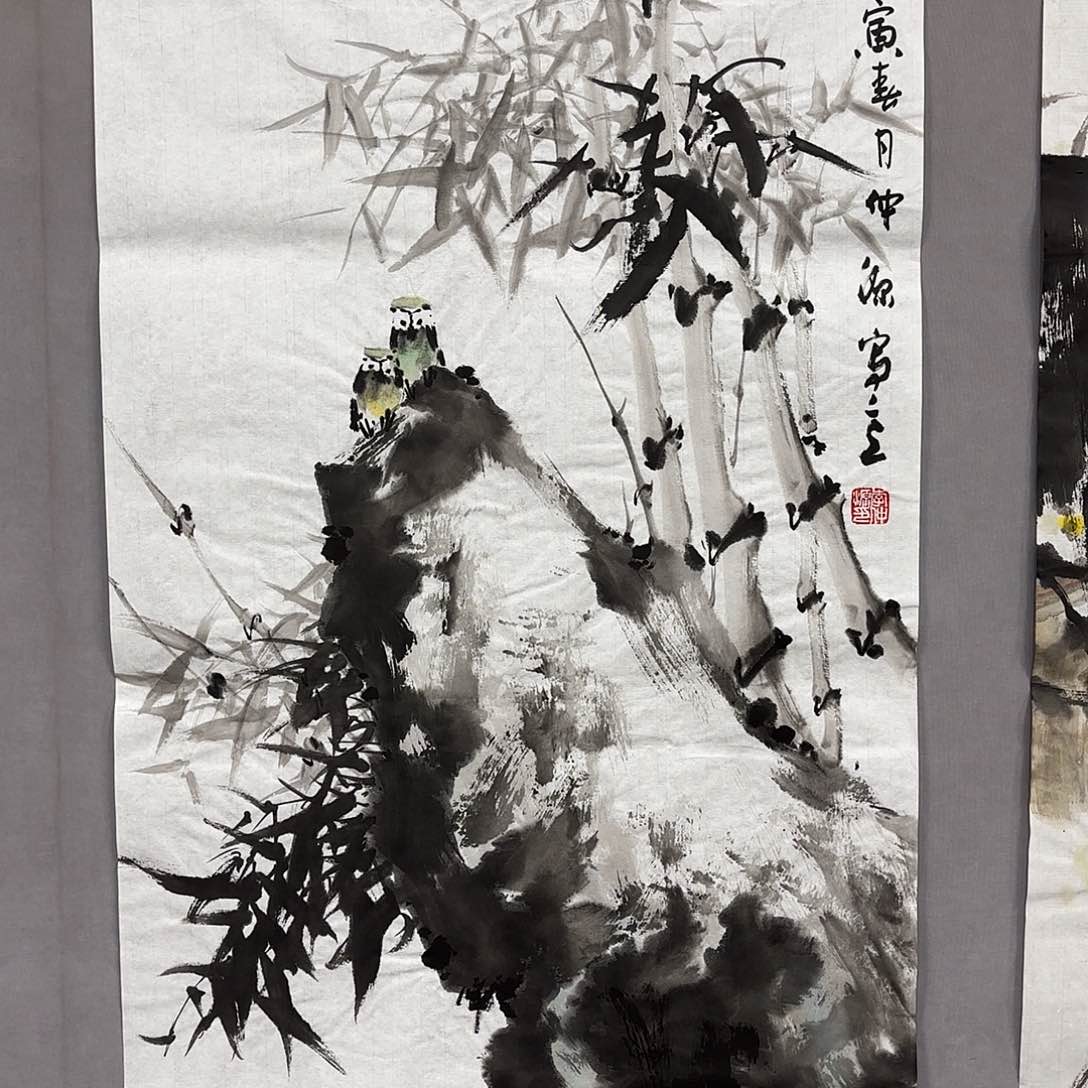 寅春月仲源写之